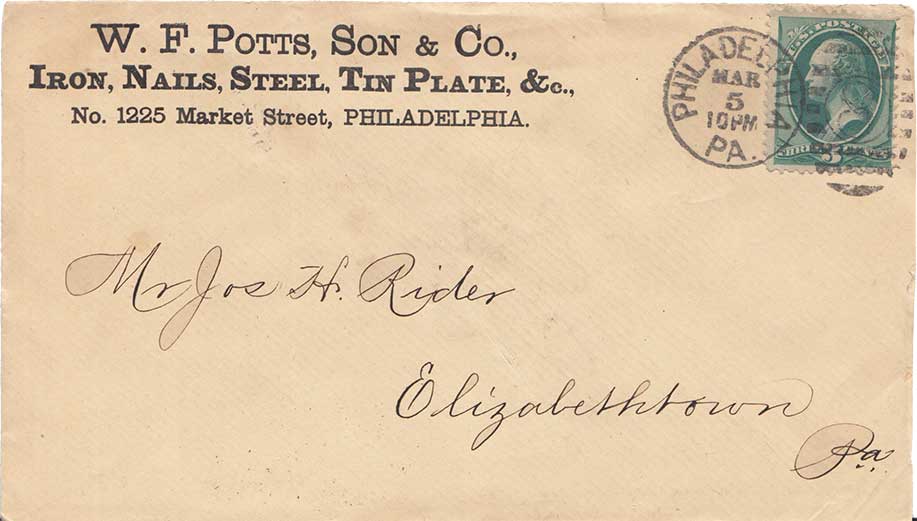 W. F. Potts, Son & Co.,
Iron, Nails, Steel, Tin Plate, &c.,
No. 1225 Market Street, PHILADELPHIA.
PHILADELPHIA
MAR
5
10PM
PA.
U.S. POSTAGE
3
Mr Jos H. Rider
Elizabethtown
Pa.